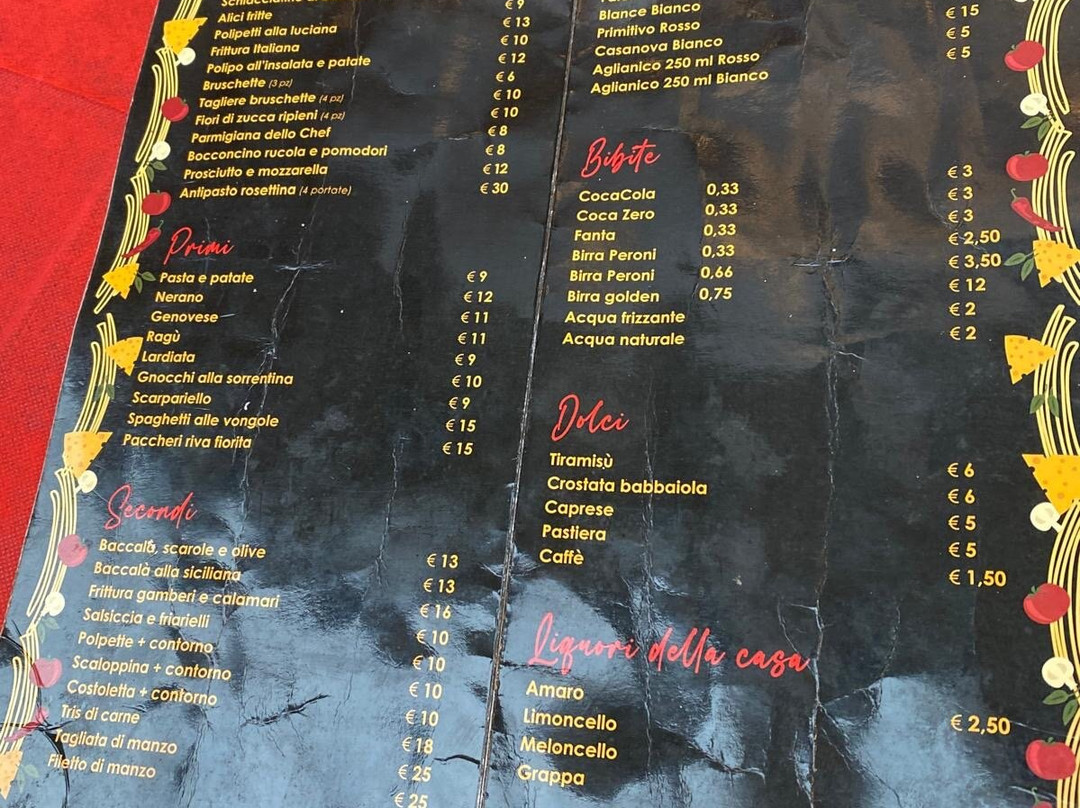 Alici fritte € 9
Polipetti alla luciana € 13
Frittura Italiana € 10
Polipo all'insalata e patate € 12
Bruschette (3 pz) € 6
Tagliere bruschette (4 pz) € 10
Fiori di zucca ripieni (4 pz) € 10
Parmigiana dello Chef € 8
Bocconcino rucola e pomodori € 8
Prosciutto e mozzarella € 12
Antipasto rosettina (4 portate) € 30
Primi
Pasta e patate € 9
Nerano € 12
Genovese € 11
Ragù € 11
Lardiata € 9
Gnocchi alla sorrentina € 10
Scarpariello € 9
Spaghetti alle vongole € 15
Paccheri riva fiorita € 15
Secondi
Baccalà, scarole e olive € 13
Baccalà alla siciliana € 13
Frittura gamberi e calamari € 16
Salsiccia e friarielli € 10
Polpette + contorno € 10
Scaloppina + contorno € 10
Costoletta + contorno € 10
Tris di carne € 18
Tagliata di manzo € 25
Filetto di manzo € 25
Blance Bianco
Primitivo Rosso
Casanova Bianco € 15
Aglianico 250 ml Rosso € 5
Aglianico 250 ml Bianco € 5
Bibite
CocaCola 0,33 € 3
Coca Zero 0,33 € 3
Fanta 0,33 € 3
Birra Peroni 0,33 € 2,50
Birra Peroni 0,66 € 3,50
Birra golden 0,75 € 12
Acqua frizzante € 2
Acqua naturale € 2
Dolci
Tiramisù € 6
Crostata babbaiola € 6
Caprese € 5
Pastiera € 5
Caffè € 1,50
Liquori della casa
Amaro
Limoncello € 2,50
Meloncello
Grappa